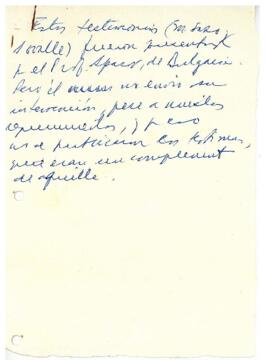 Estos testimonios (
) fueron presentad
p el Prof. Spasov, de Bulgaria.
Pero él no envió su
intervención, pese a nuestros
requerimientos, y p eso
no se publicaron los
que eran un complement
de aquélla.